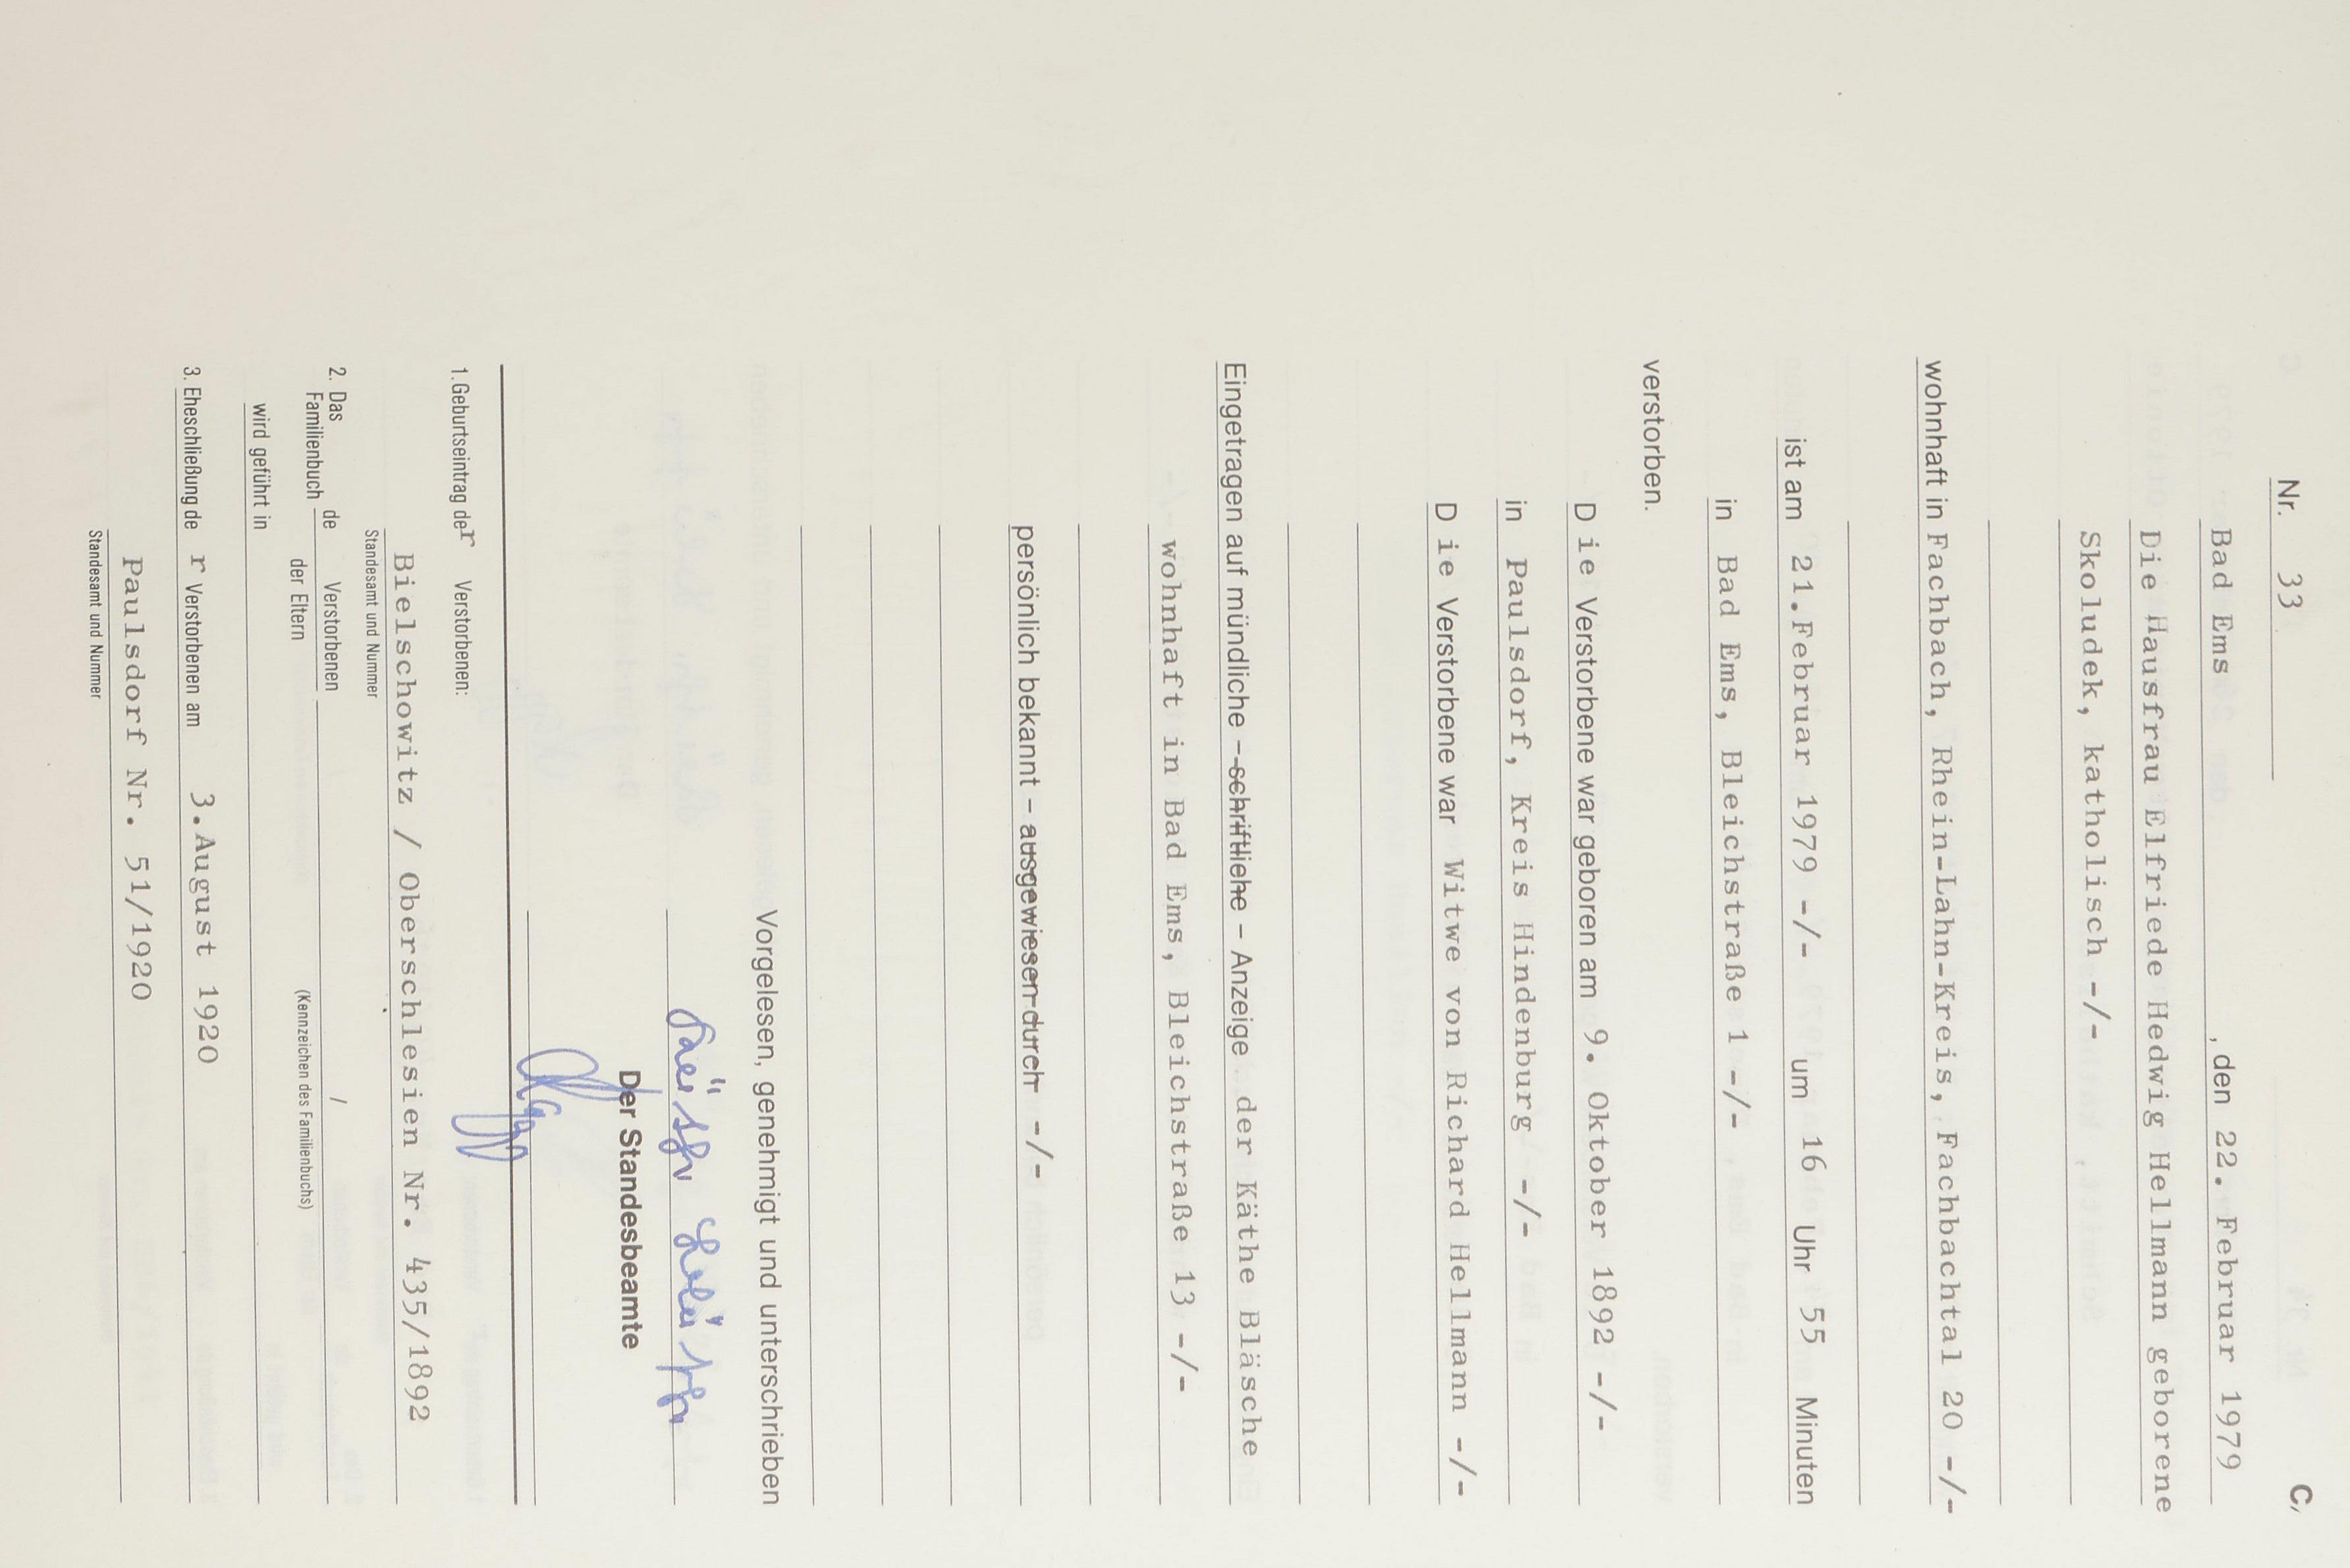 Nr. 33 C
Bad Ems , den 22. Februar 1979
Die Hausfrau Elfriede Hedwig Hellmann geborene
Skoludek, katholisch -/-
wohnhaft in Fachbach, Rhein-Lahn-Kreis, Fachbachtal 20 -/-
ist am 21.Februar 1979 -/- um 16 Uhr 55 Minuten
in Bad Ems, Bleichstraße 1 -/-
verstorben.
D ie Verstorbene war geboren am 9. Oktober 1892 -/-
in Paulsdorf, Kreis Hindenburg -/-
D ie Verstorbene war Witwe von Richard Hellmann -/-
Eingetragen auf mündliche – schriftliche – Anzeige der Käthe Bläsche
wohnhaft in Bad Ems, Bleichstraße 13 -/-
persönlich bekannt – ausgewiesen durch -/-
Vorgelesen, genehmigt und unterschrieben
Der Standesbeamte
1. Geburtseintrag der Verstorbenen:
Bielschowitz / Oberschlesien Nr. 435/1892
Standesamt und Nummer
2. Das Familienbuch de Verstorbenen /
der Eltern (Kennzeichen des Familienbuchs)
wird geführt in
3. Eheschließung de r Verstorbenen am 3.August 1920
Paulsdorf Nr. 51/1920
Standesamt und Nummer